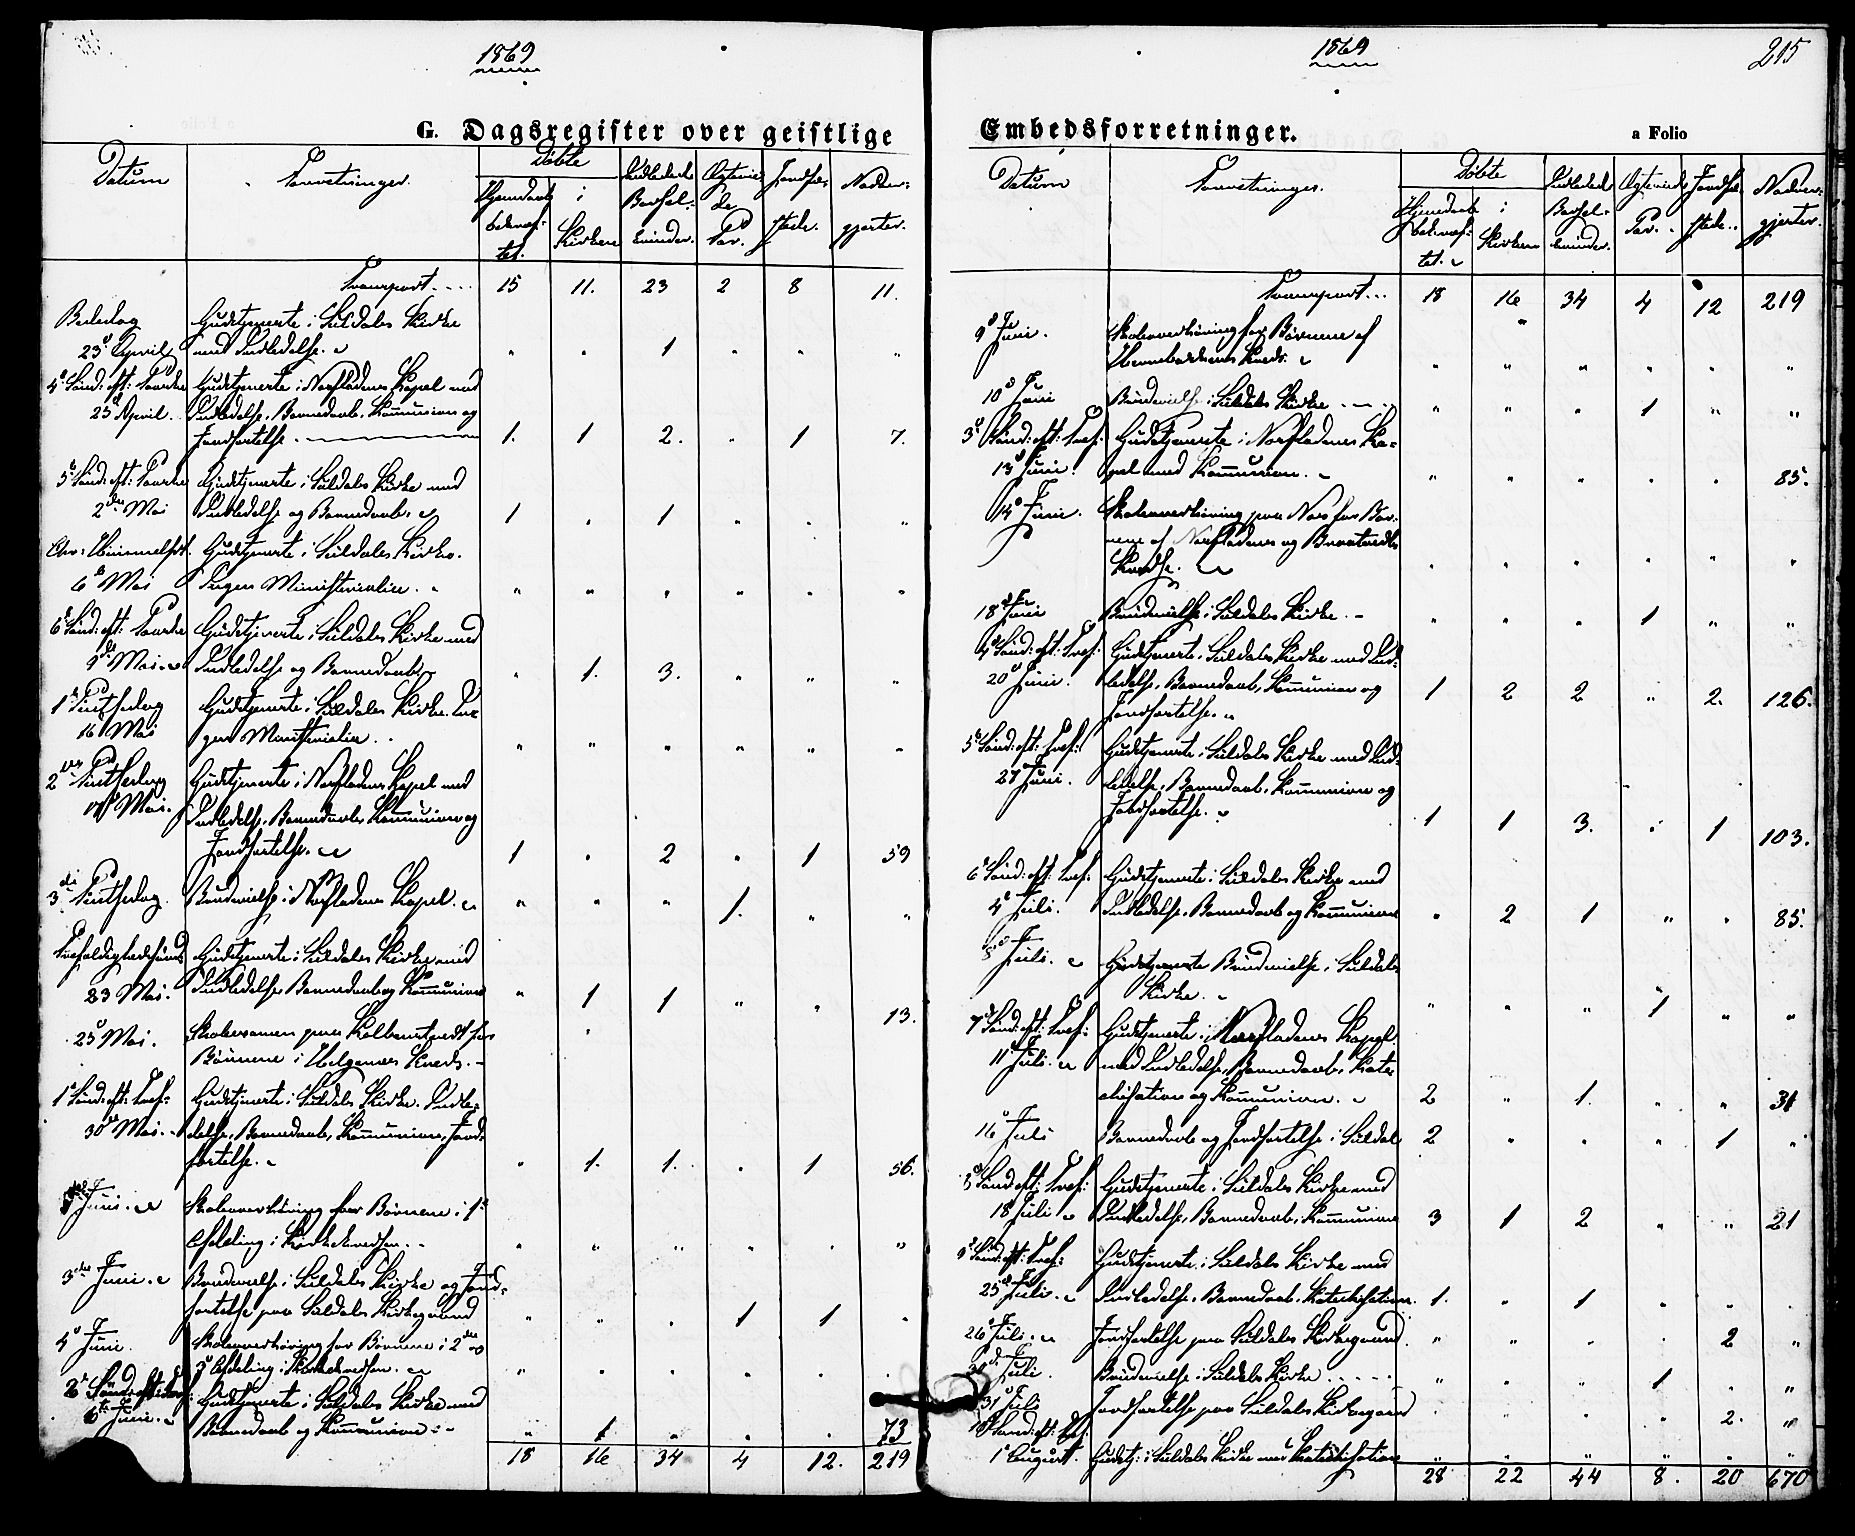 1869
G. Dagsregister over geistlige
Datum Forretninger. Døbte Indledede Ægteviede Jordfæstede. Nadvergjester.
Hjemdaab bekræftet. i Kirken Barselkvinder. Par.
Transport 15 11. 23 2 8 11.
Bededag Gudstjeneste i Suldals Kirke
23de April med Indledelse. " " 1 " " "
4de Sønd: eft: Paaske Gudstjeneste i Nesfladens Kapel med
25de April. Indledelse, Barnedaab, Kommunion og
Jordfæstelse. 1. 1 2. " 1 7.
5te Sønd: eft: Paaske Gudstjeneste i Suldals Kirke med
2den Mai Indledelse og Barnedaab. 1 " 1 " " "
Chr: Himmelfart. Gudstjeneste i Suldals Kirke.
6te Mai Ingen Ministerialier. " " " " " "
6te Sønd: eft: Paaske Gudstjeneste i Suldals Kirke med
9de Mai Indledelse og Barnedaab. " 1. 3. " " "
1ste Pintsedag Gudstjeneste i Suldals Kirke. In-
16 Mai gen Ministerialier. " " " " " "
2den Pintsedag Gudstjeneste i Nesfladens Kapel med
17de Mai. Indledelse, Barnedaab, Kommunion og
Jordfæstelse. 1 " 2 " 1 59
3die Pintsedag. Brudevielse i Nesfladens Kapel. " " " 1. " "
Trefoldighedssønd. Gudstjeneste i Suldals Kirke med
23 Mai. Indledelse, Barnedaab og Kommunion " 1 1 " " 13.
25de Mai. Skoleexamen paa Kolbenstvedt for
Børnene i Helgenæs Kreds.
1ste Sønd: eft: Tref: Gudstjeneste i Suldals Kirke. Indle-
30te Mai. delse, Barnedaab, Kommunion, Jord-
fæstelse. " 1. 1. " 1 56.
Juni. Skoleoverhøring for Børnene i 1ste
Afdeling i Kirkekredsen. " " " " " "
3die Juni. Brudevielse i Suldals Kirke og Jord-
fæstelse paa Suldals Kirkegaard " " " 1 1 "
4de Juni. Skoleoverhøring for Børnene i 2den og
3die Afdeling i Kirkekredsen. " " " " " "
2den Sønd: eft: Tref: Gudstjeneste i Suldals Kirke med
6te Juni. Barnedaab og Kommunion " 1 " " " 73
18 16 34 4 12. 219
1869
215
Embedsforretninger.
a Folio
Datum Forretninger. Døbte Indledede Ægteviede Jordfæstede. Nadvergjester.
Hjemdaab bekræftet. i Kirken Barselkvinder. Par.
Transport 18 16 34 4 12 219
9de Juni. Skoleoverhøring for Børnene af
Kreds. " " " " " "
10de Juni Brudevielse i Suldals Kirke " " " 1 " "
3die Sønd: eft: Tref: Gudstjeneste i Nesfladens Ka-
13de Juni. pel med Kommunion. " " " " " 85.
14de Juni. Skoleoverhøring paa Næs for Bør-
nene af Nesfladens og Bratvedts
Kredse. " " " " " "
18de Juni Brudevielse i Suldals Kirke. " " " 1 " "
4de Sønd: eft: Tref: Gudstjeneste i Suldals Kirke med Ind-
20de Juni. ledelse, Barnedaab, Kommunion og
Jordfæstelse. 1 2 2 " 2. 126.
5te Sønd: eft: Tref: Gudstjeneste i Suldals Kirke med Ind-
27de Juni. ledelse, Barnedaab, Kommunion og
Jordfæstelse. 1 1 3. " 1 103.
6te Sønd: eft: Tref: Gudstjeneste i Suldals Kirke med
4de Juli. Indledelse, Barnedaab og Kommunion " 2 1 " " 85.
Juli. Brudevielse i Suldals
Kirke. " " " 1 " "
7de Sønd: eft: Tref: Gudstjeneste i Nesfladens Kapel
11te Juli. med Indledelse, Barnedaab, Kate-
chisation og Kommunion. 2 " 1. " " 31
16de Juli Barnedaab og Jordfæstelse i Suldal 2 " " " 1 "
8de Sønd: eft: Tref: Gudstjeneste i Suldals Kirke med
18 Juli Indledelse, Barnedaab, Kommunion 3 1 2 " " 21
9de Sønd: eft: Tref: Gudstjeneste i Suldals Kirke med
25de Juli. Indledelse, Barnedaab, Katechisation. 1. " 1 " " "
26de Juli. Jordfæstelse paa Suldals Kirkegaard. " " " " 2 "
Juli. Brudevielse i Suldals Kirke " " " 1 " "
31 Juli Jordfæstelse paa Suldals Kirkegaard " " " " 2. "
Sønd: eft: Tref:
1ste August. Gudstj: i Suldals Kirke med Katechisation " " " " " "
28 22 44 8. 20 670